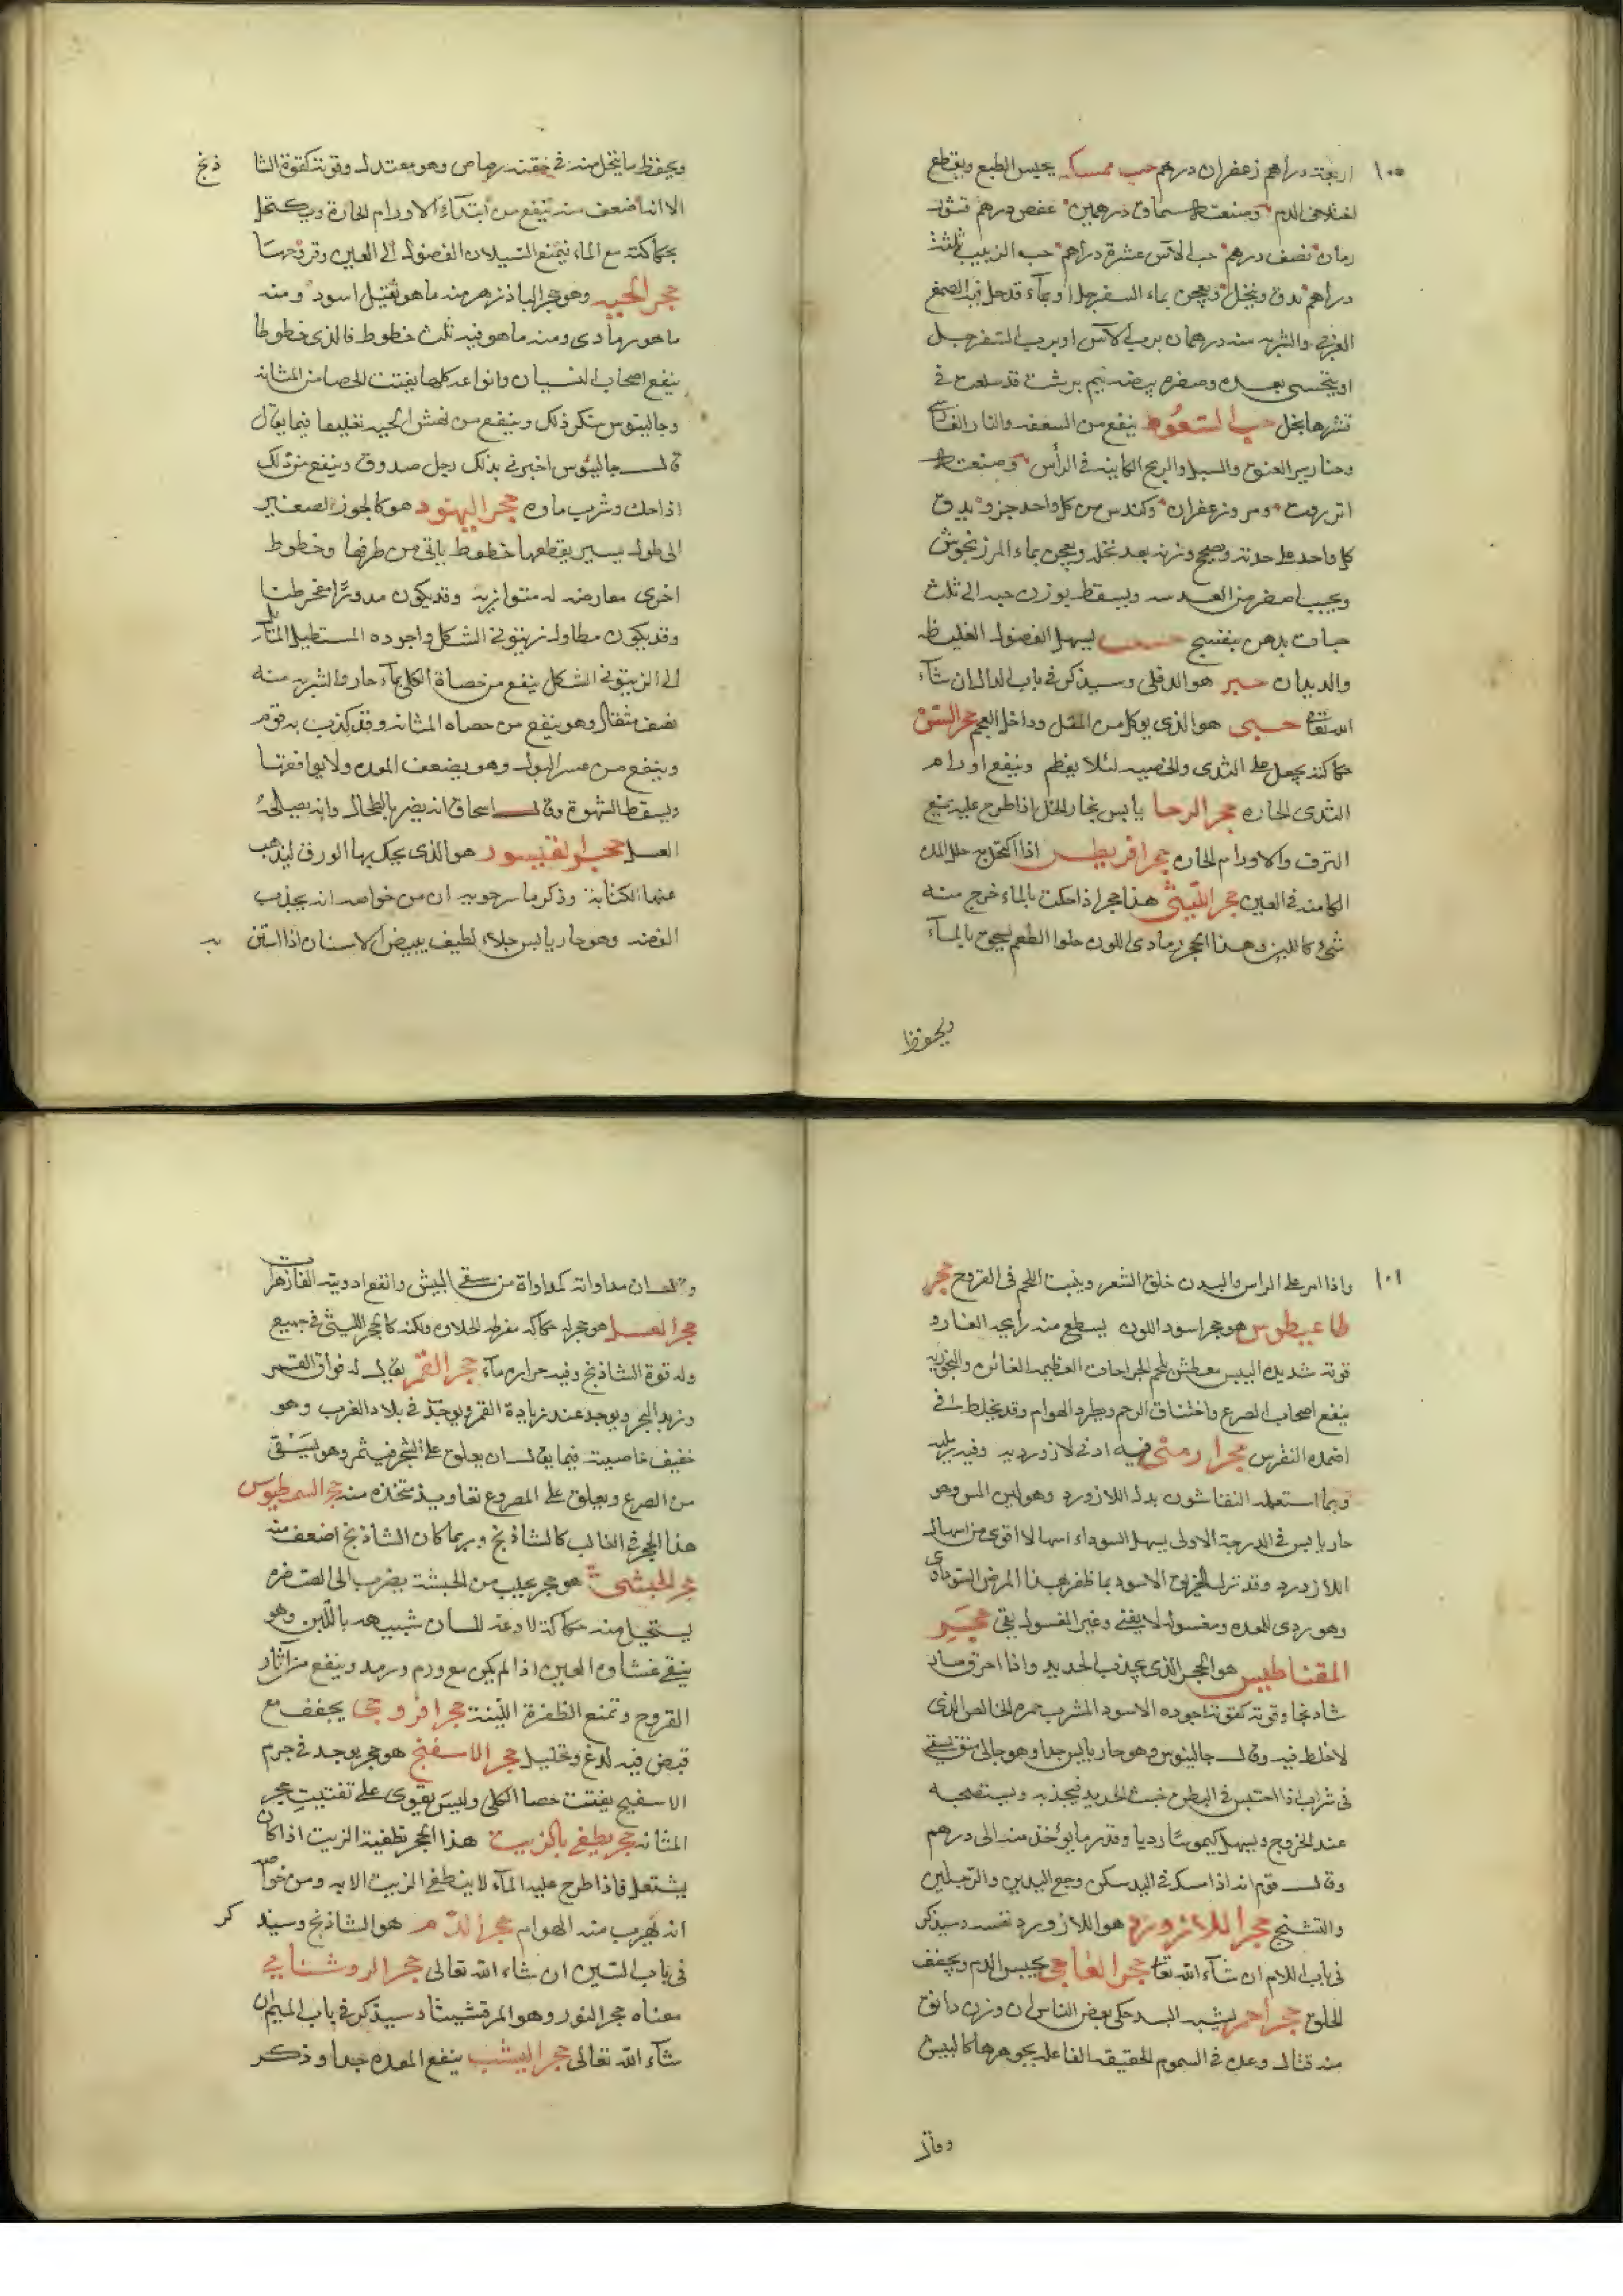 ١٠٠
اربعة دراهم زعفران درهم حب ممسك يحبس الطبع ويقطع
اختلاف الدم وصنعته سماق درهمين عفص درهم قشور
رمان نصف درهم حب الآس عشرة دراهم حب الزبيب ثلثة
دراهم يدق وينخل ويعجن بماء السفرجل او بماء قد حل فيه الصمغ
العربى والشربه منه درهمان برب الآس او برب السفرجل
او يتحسى بعده وصفره بيضه نيم برشت قد سلقت فى
قشرها بخل حب السعوط ينفع من السعفه والنار الفارسى
وخنازير العنق والسبل والريح الكاينه فى الرأس وصنعته
انزروت ومر وزعفران وكندس من كل واحد جزو يدق
كل واحد على حدته ويصحح وزنه بعد نخله ويعجن بماء المرزنجوش
ويحبب اصغر من العدسه ويسقط بوزن حبه الى ثلث
حبات بدهن بنفسج يسهل الفضول الغليظه
والديدان حبر هو الدفلى وسيذكر فى باب الدال ان شآء
الله تعالى حسبى هو الذى يوكل من المقل وداخل العجم حجر المسن
حكاكته يجعل على الثدى والخصيه لئلا يعظم وينفع اورام
الثدى الحاره حجر الرحا يابس بخار الخل اذا طرح عليه يمنع
النزف والاورام الحاره حجر افريطس اذا اكتحل به حلل المده
الكامنه فى العين حجر اللبنى هذا حجر اذا حكت بالماء خرج منه
شئ كاللبن وهذا الحجر رمادى اللون حلوا الطعم يسحق بالمآء
ويحفظ
ويحفظ ما ينحل منه فى حقته رصاص وهو معتدل وقوته كقوة الشا ذنج
الا انه اضعف منه ينفع من ابتداء الاورام الحارة ويكتحل
بحكاكته مع الماء فيمنع السيلان الفضول الى العين وقروحها
حجر الحيه وهو حجر الباذزهر منه ما هو ثقيل اسود ومنه
ما هو رمادى ومنه ما هو فيه ثلث خطوط فالذى خطوطا
ينفع اصحاب النسيان وانواعه كلها يفتت الحصا من المثانه
وجالينوس ينكر ذلك وينفع من نهش الحيه تعليقا فيما يقال
قال جالينوس اخبرنى بذلك رجل صدوق وينفع من ذلك
اذا حك وشرب ماوه حجر اليهود هو كالجوز الصغير
الى طول يسير يقطعها خطوط ياتى من طرفها وخطوط
اخرى معارضه له متوازيه وقد يكون مدورا مفرطحا
وقد يكون مطاول زيتونى الشكل واجوده المستطيل المائل
الى الزيتونى الشكل ينفع من حصاة الكلى بمآء حار والشربه منه
نصف مثقال وهو ينفع من حصاه المثانه وقد كذب به قوم
وينفع من عسر البول وهو يضعف المعده ولا يوافقها
ويسقط الشهوة وقال اسحاق انه يضر بالطحال وانه يصلحه
العسل حجر القيسور هو الذى يحك بها الورق ليذهب
عنها الكتابة وذكر ماسرجويه ان من خواصه انه يجذب
الفضه وهو حار يابس جلاء لطيف يبيض الاسنان اذا استن به
١٠١
واذا امر على الراس والبدن خلق الشعر وينبت اللحم فى القروح حجر
طاعيطوس هو حجر اسود اللون يسطع منه رايحه الغار وه
قوته شديده اليبس معطش يلحم الجراحات العظيمه الغائره والبخور به
ينفع اصحاب الصرع واختناق الرحم ويطرد الهوام وقد يخلط فى
اضمده النقرس حجر ارمنى فيه ادنى لازورديه وفيه رمليه
وربما استعمله النقاشون بدل اللازورد وهو لين المس وهو
حار يابس فى الدرجة الاولى يسهل السوداء اسهالا اقوى من اسهال
اللازورد وقد ترك الخربق الاسود بما ظفر بهذا المرض السوداوى
وهو ردى للمعده ومغسوله لا يقئ وغير المغسول يقئ حجر
المقناطيس هو الحجر الذى يجذب الحديد واذا احرق صار
شاذنجا وقوته كقوته اجوده الاسود المشرب حمره الخالص الذى
لا خلط فيه وقال جالينوس وهو حار يابس جدا وهو جالى منق يسقى
فى شراب اذا احتبس فى البطن خبث الحديد فيجذبه ويستصحبه
عند الخروج ويسهل كيموسا رديا وقدر ما يوخذ منه الى درهم
وقال قوم انه اذا امسك فى اليد سكن وجع اليدين والرجلين
والتشنج حجر اللازورد هو اللازورد نفسه وسيذكر
فى باب اللام ان شآء الله تعالى حجر العاجى يحبس الدم ويجفف
الحلق حجر احمر يشبه البسد حكى بعض الناس ان وزن دانق
منه قتال وعد فى السموم الحقيقه الفاعله بجوهرها كالبيش
وقال
وقال ان مداواته كمداواة من سقى البيش وانفع ادويته الفازهرات
حجر العسل هو حجر له حكاكه مفرطه الحلاوه ولكنه كالحجر اللبنى فى جميع
وله قوة الشاذنج وفيه حراره مآء حجر القمر يقال له فواق القمر
وزبد البحر ويوجد عند زيادة القمر ويوجد فى بلاد الغرب وهو
خفيف خاصيته فيما يقال ان يعلق على الشجر فيثمر وهو يسقى
من الصرع ويعلق على المصروع تعاويذ متخذه منه حجر السرطيوس
هذا الحجر فى الغالب كالشاذنج وربما كان الشاذنج اضعف منه
حجر الحبشى هو حجر يجلب من الحبشة يضرب الى الصفره
يستحيل منه حكاكة لاذعه للسان شبيهه باللبن وهو
ينقى غشاوه العين اذا لم يكن مع ورم ورمد وينفع من آثار
القروح وتمنع الظفرة اللينة حجر افروجى يجفف مع
قبض فيه لدغ وتحليل حجر الاسفنج هو حجر يوجد فى جرم
الاسفنج يفتت حصا الكلى وليس يقوى على تفتيت حجر
المثانه حجر يطفى بالزيت هذا الحجر تطفية الزيت اذا كان
يشتعل فاذا طرح عليه المآء لا ينطفى الزيت الا به ومن خواصه
انه يهرب منه الهوام حجر الدم هو الشاذنج وسيذكر
فى باب الشين ان شاء الله تعالى حجر الروشنايى
معناه حجر النور وهو المرقشيثا وسيذكر فى باب الميم ان
شآء الله تعالى حجر اليشب ينفع المعده جدا وذكر